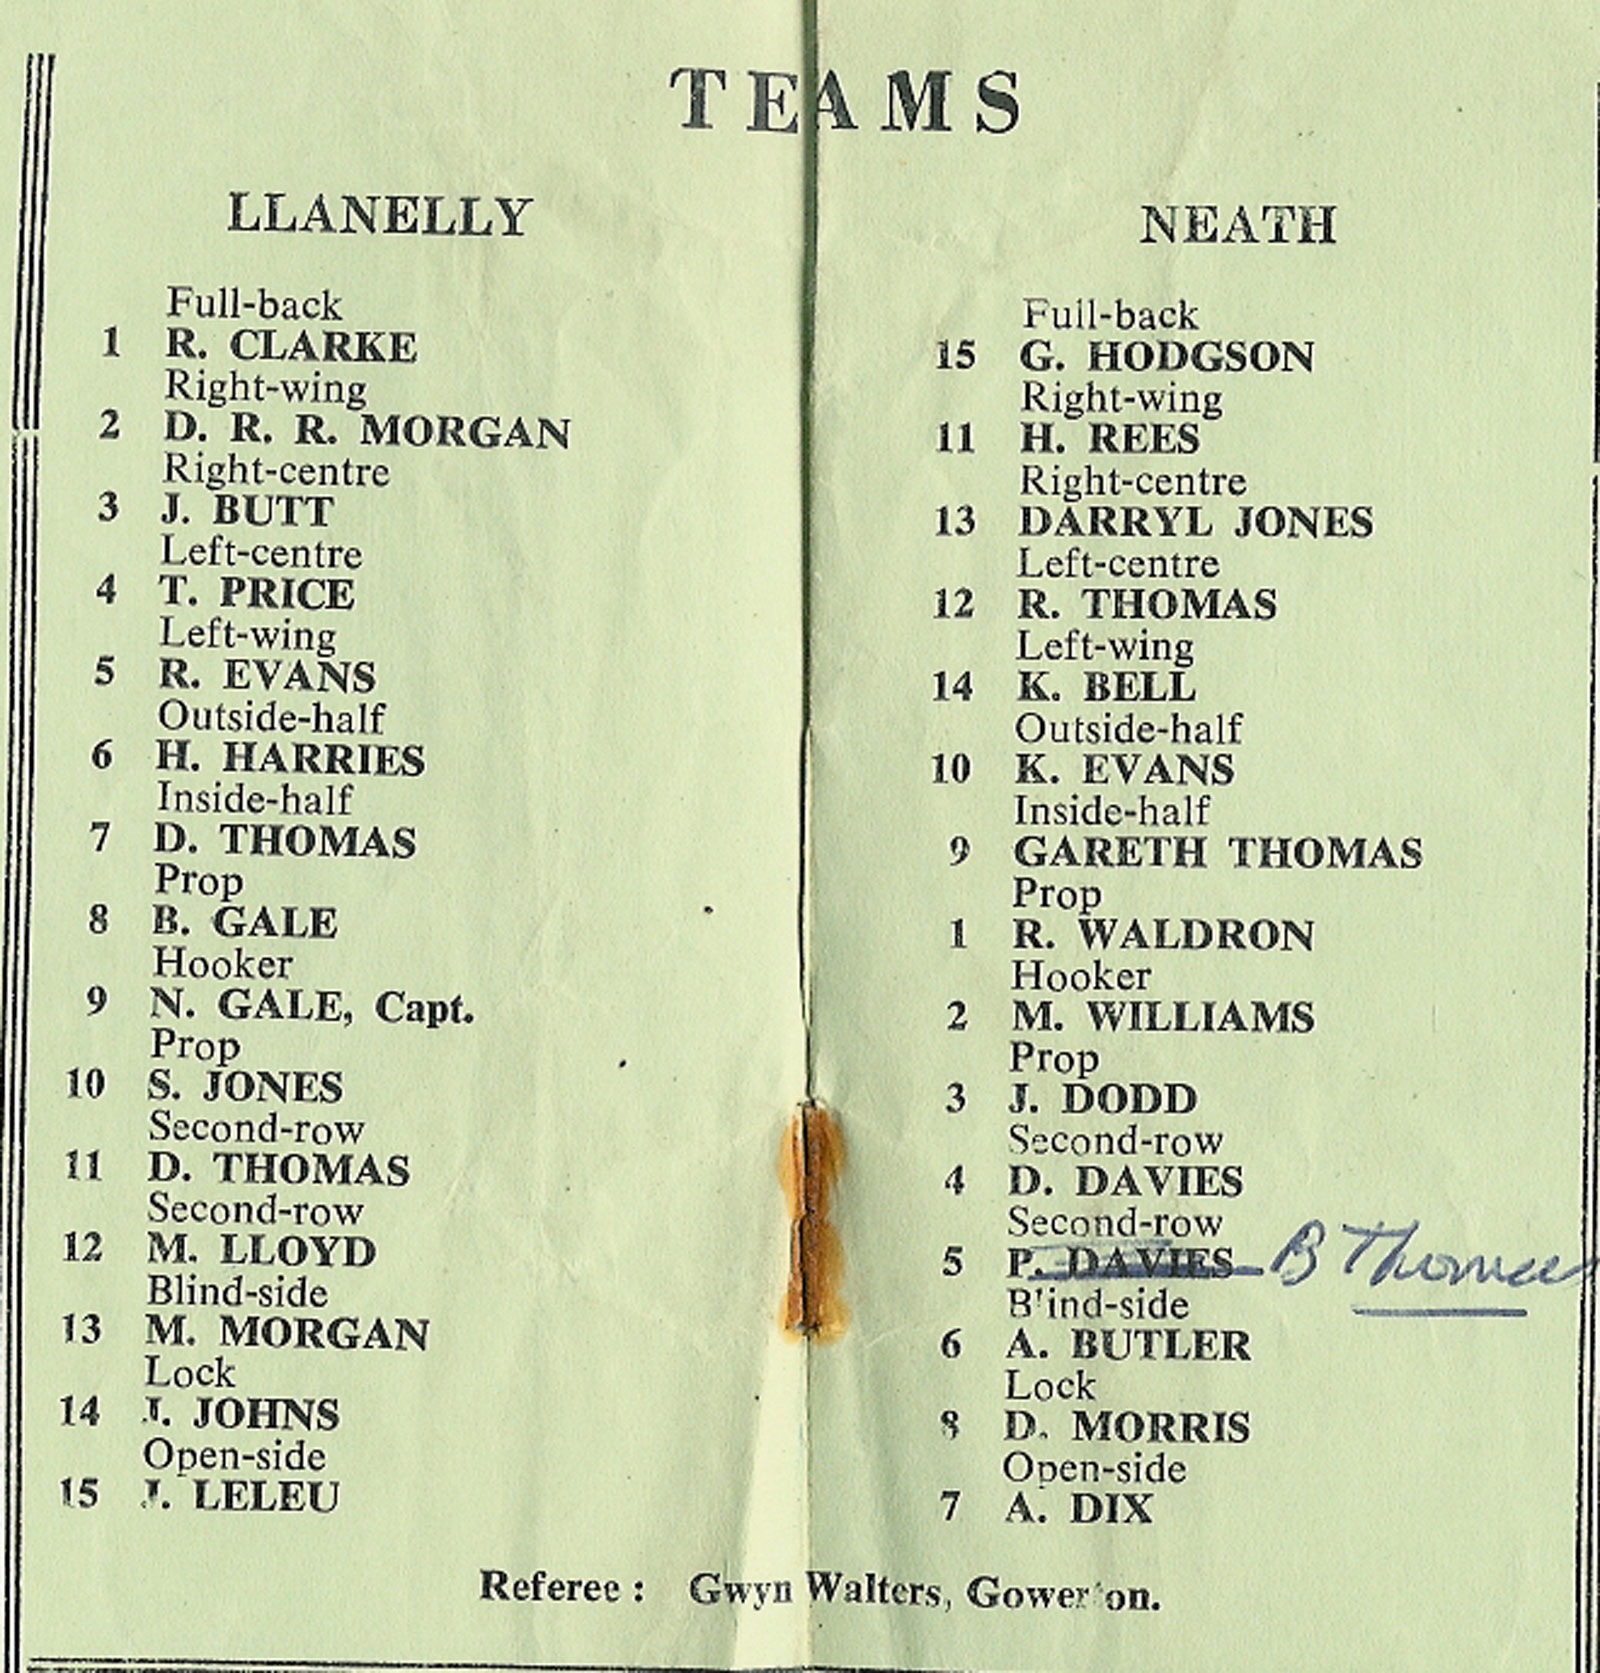 TEAMS
LLANELLY
Full-back
1 R. CLARKE
Right-wing
2 D. R. R. MORGAN
Right-centre
3 J. BUTT
Left-centre
4 T. PRICE
Left-wing
5 R. EVANS
Outside-half
6 H. HARRIES
Inside-half
7 D. THOMAS
Prop
8 B. GALE
Hooker
9 N. GALE, Capt.
Prop
10 S. JONES
Second-row
11 D. THOMAS
Second-row
12 M. LLOYD
Blind-side
13 M. MORGAN
Lock
14 J. JOHNS
Open-side
15 J. LELEU
NEATH
Full-back
15 G. HODGSON
Right-wing
11 H. REES
Right-centre
13 DARRYL JONES
Left-centre
12 R. THOMAS
Left-wing
14 K. BELL
Outside-half
10 K. EVANS
Inside-half
9 GARETH THOMAS
Prop
1 R. WALDRON
Hooker
2 M. WILLIAMS
Prop
3 J. DODD
Second-row
4 D. DAVIES
Second-row
5 P. DAVIES B Thomas
Blind-side
6 A. BUTLER
Lock
8 D. MORRIS
Open-side
7 A. DIX
Referee : Gwyn Walters, Gowerton.